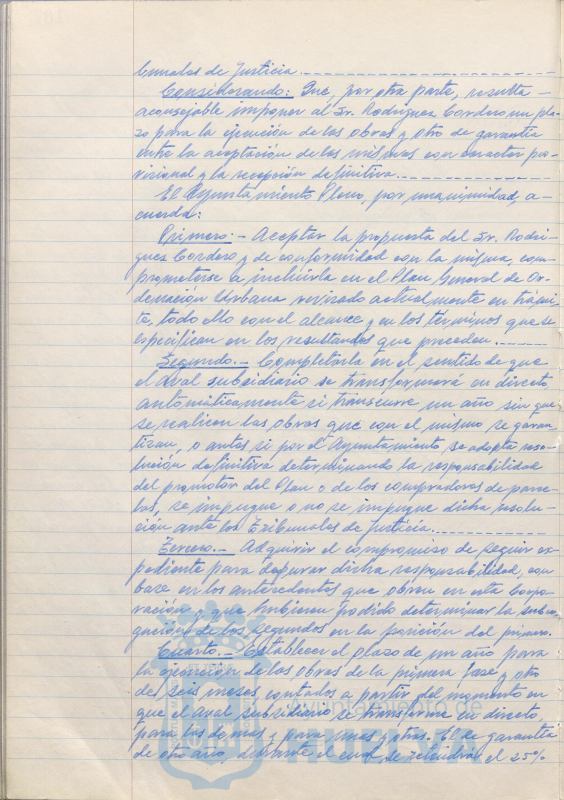 bunales de Justicia.
Considerando: Que, por otra parte, resulta
aconsejable imponer al Sr. Rodriguez Cordero un pla-
zo para la ejecución de las obras y otro de garantia
entre la aceptación de las mismas con caracter pro-
visional y la recepción definitiva.
El Ayuntamiento Pleno, por unanimidad, a-
cuerda:
Primero.- Aceptar la propuesta del Sr. Rodri-
guez Cordero y de conformidad con la misma, com-
prometerse a incluirla en el Plan General de Or-
denación Urbana revisado actualmente en trámi-
te, todo ello con el alcance y en los términos que se
especifican en los resultandos que preceden.
Segundo.- Completarla en el sentido de que
el Aval subsidiario se transformará en directo,
automáticamente si transcurre un año sin que
se realicen las obras que con el mismo se garan-
tizan, o antes si por el Ayuntamiento se adopta reso-
lución definitiva determinando la responsabilidad
del promotor del Plan o de los compradores de parce-
las, se impugne o no se impugne dicha resolu-
ción ante los Tribunales de Justicia.
Tercero.- Adquirir el compromiso de seguir ex-
pediente para depurar dicha responsabilidad, con
base en los antecedentes que obran en esta Corpo-
ración y que hubieran podido determinar la subro-
gación de los segundos en la posición del primero.
Cuarto.- Establecer el plazo de un año para
la ejecución de las obras de la primera fase y otro
de seis meses contados a partir del momento en
que el Aval subsidiario se transforme en directo,
para las demas y para unas y otras. El de garantía
de otro año, durante el cual se retendrá el 25%
Ayuntamiento de
HUELVA